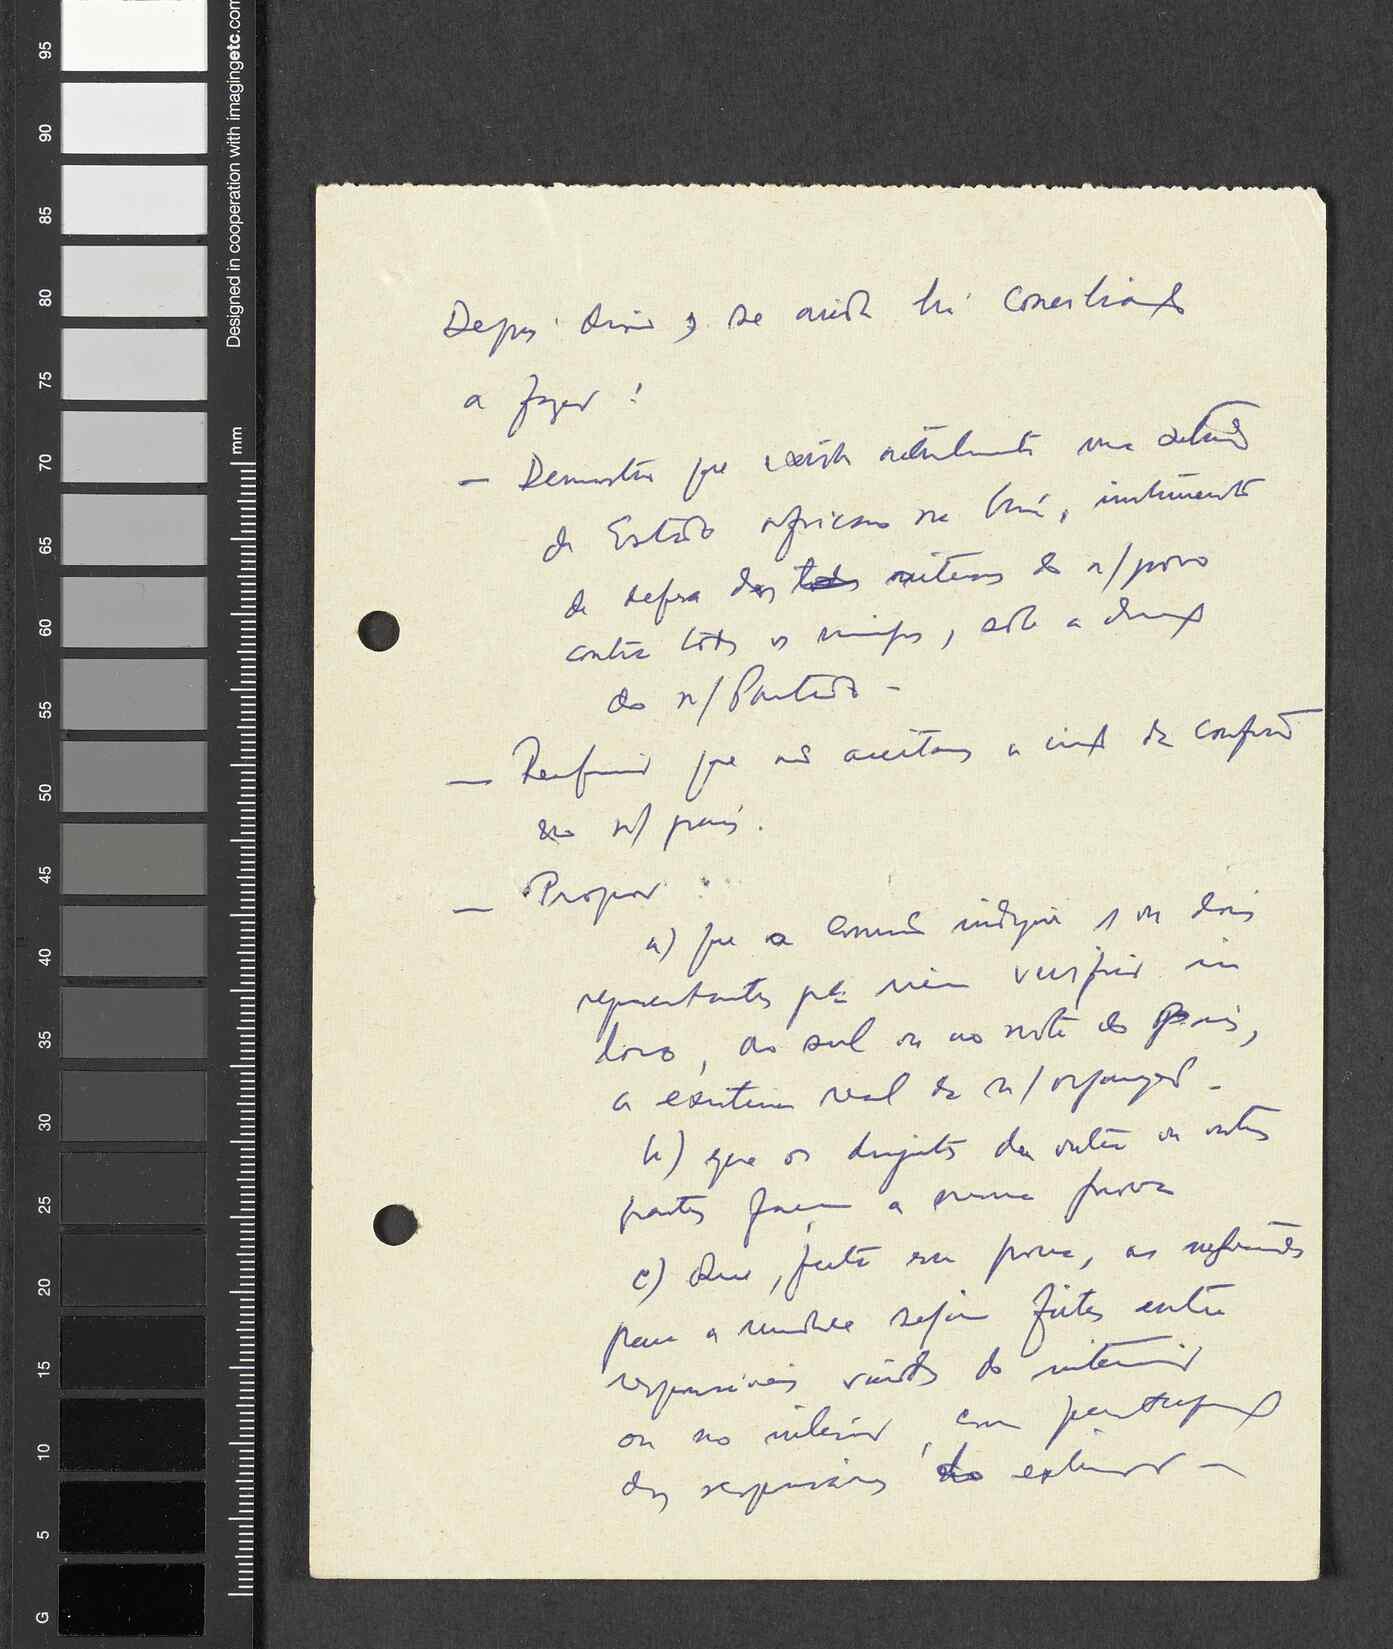 95
90
85
80
75
70
65
60
55
50
45
40
35
30
25
20
15
10
5
G
Designed in cooperation with imagingetc.com
mm
Depois disso, se ainda há
a fazer:
— Demonstrar que existe uma
de Estado africano na Guiné, instrumento
de defesa dos do n/povo
contra todos os inimigos, sob a direcção
do n/Partido -
— Reafirmar que não aceitamos a de confusão
no n/ país.
— Propor:
a) que o Comité indique 1 ou dois
representantes para virem verificar in
loco, ao sul ou ao norte do País,
a existência real da n/organização -
b) que os dirigentes da outra ou outras
partes façam a mesma prova
c) Que, feita essa prova, as negociações
para a unidade sejam feitas entre
responsáveis vindos do interior
ou no interior, com participação
dos responsáveis do exterior -